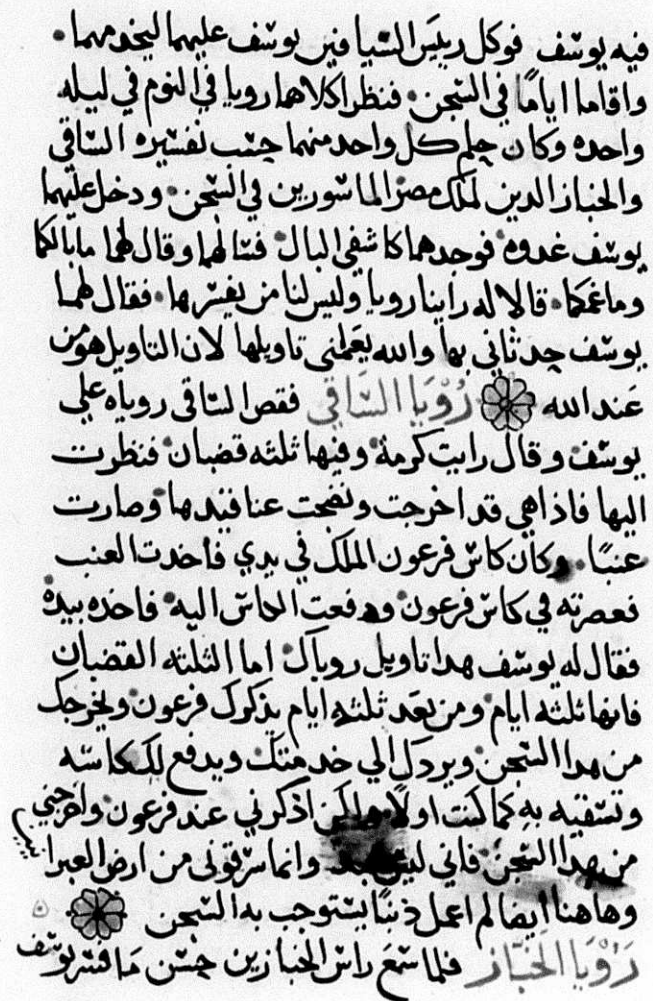 فيه يوسف فوكل رييس السيافين يوسف عليهما ليخدمهما
واقاما اياما في السجن فنظرا كلاهما رويا في النوم في ليله
واحده وكان حلم كل واحد منهما حسب تفسيره الساقي
والخباز الدين لملك مصر الماسورين في السجن ودخل عليهما
يوسف غدوه فوجدهما كاسفي البال فسالهما وقال لهما ما بالكما
وما غمكما قالا له راينا رويا وليس لنا من يفسرها فقال لهما
يوسف حدثاني بها والله يعلمني تاويلها لان التاويل هو من
عند الله رُوْيَا السَّاقي فقص الساقي روياه علي
يوسف وقال رايت كرمة وفيها ثلثه قضبان فنظرت
اليها فاذا هي قد اخرجت ونضجت عناقيدها وصارت
عنبًا وكان كاس فرعون الملك في يدي فاخدت العنب
فعصرته في كاس فرعون ودفعت الكاس اليه فاخده بيده
فقال له يوسف هدا تاويل روياك اما الثلثه القضبان
فانها ثلثه ايام ومن بعد ثلثه ايام يذكرك فرعون ويخرجك
من هدا السجن ويردك الي خدمتك ويدفع لك كاسه
وتسقيه به كما كنت اولًا ولكن اذكرني عند فرعون واخرجني
من هدا السجن فاني وانما سرقوني من ارض العبرا
وهاهنا ايضا لم اعمل ذنبًا يستوجب به السجن
رُوْيَا الخَبَّاز فلما سمع راس الخبازين حسن ما فسر يوسف